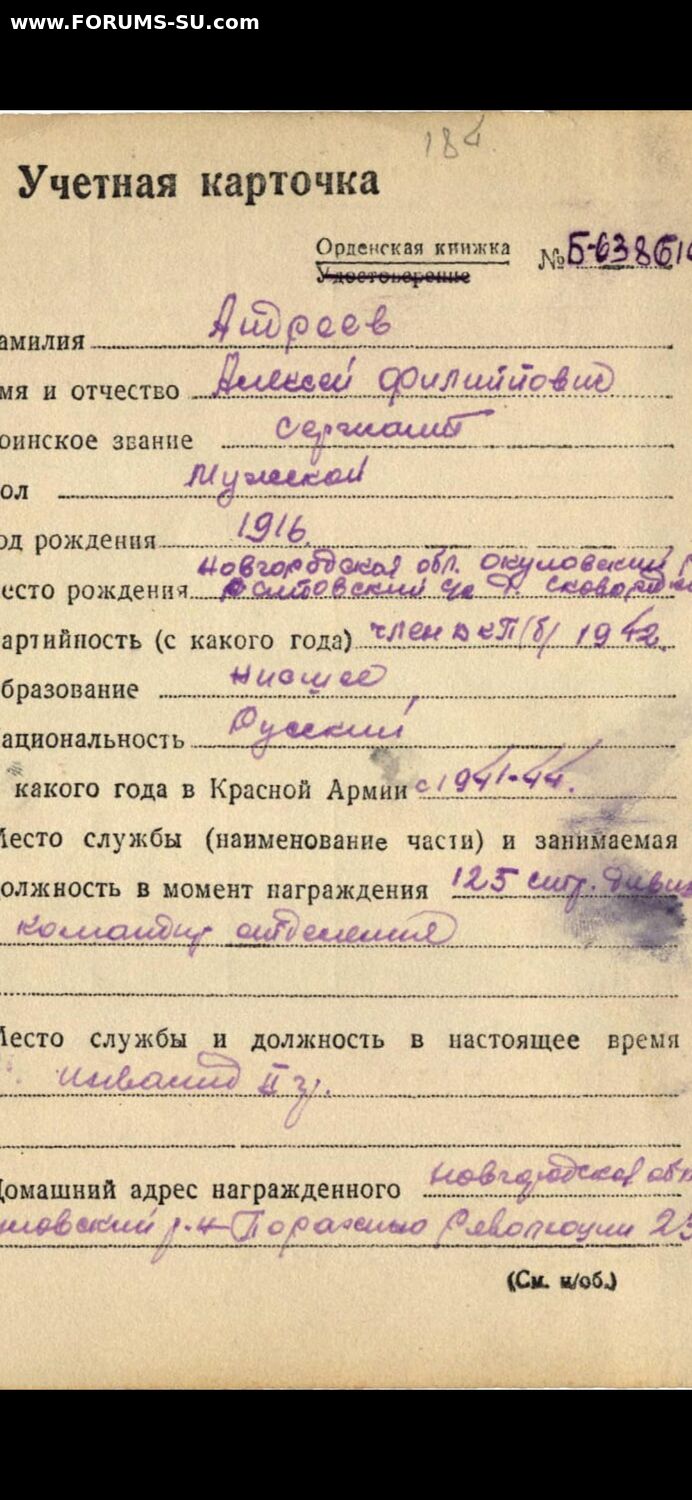 www.FORUMS-SU.com
184
Учетная карточка
Орденская книжка
Удостоверение
№ Б-638610
амилия Андреев
мя и отчество Алексей Филиппович
оинское звание сержант
ол Мужской
од рождения 1916
Новгородская обл. Окуловский
есто рождения
артийность (с какого года) член ВКП(б) 1942
бразование Низшее
ациональность Русский
какого года в Красной Армии с 1941-44.
Место службы (наименование части) и занимаемая
олжность в момент награждения 125 стр. дивиз
командир отделения
Место службы и должность в настоящее время
инвалид II гр.
Новгородская обл
Домашний адрес награжденного
р-н Революции 23
(См. н/об.)